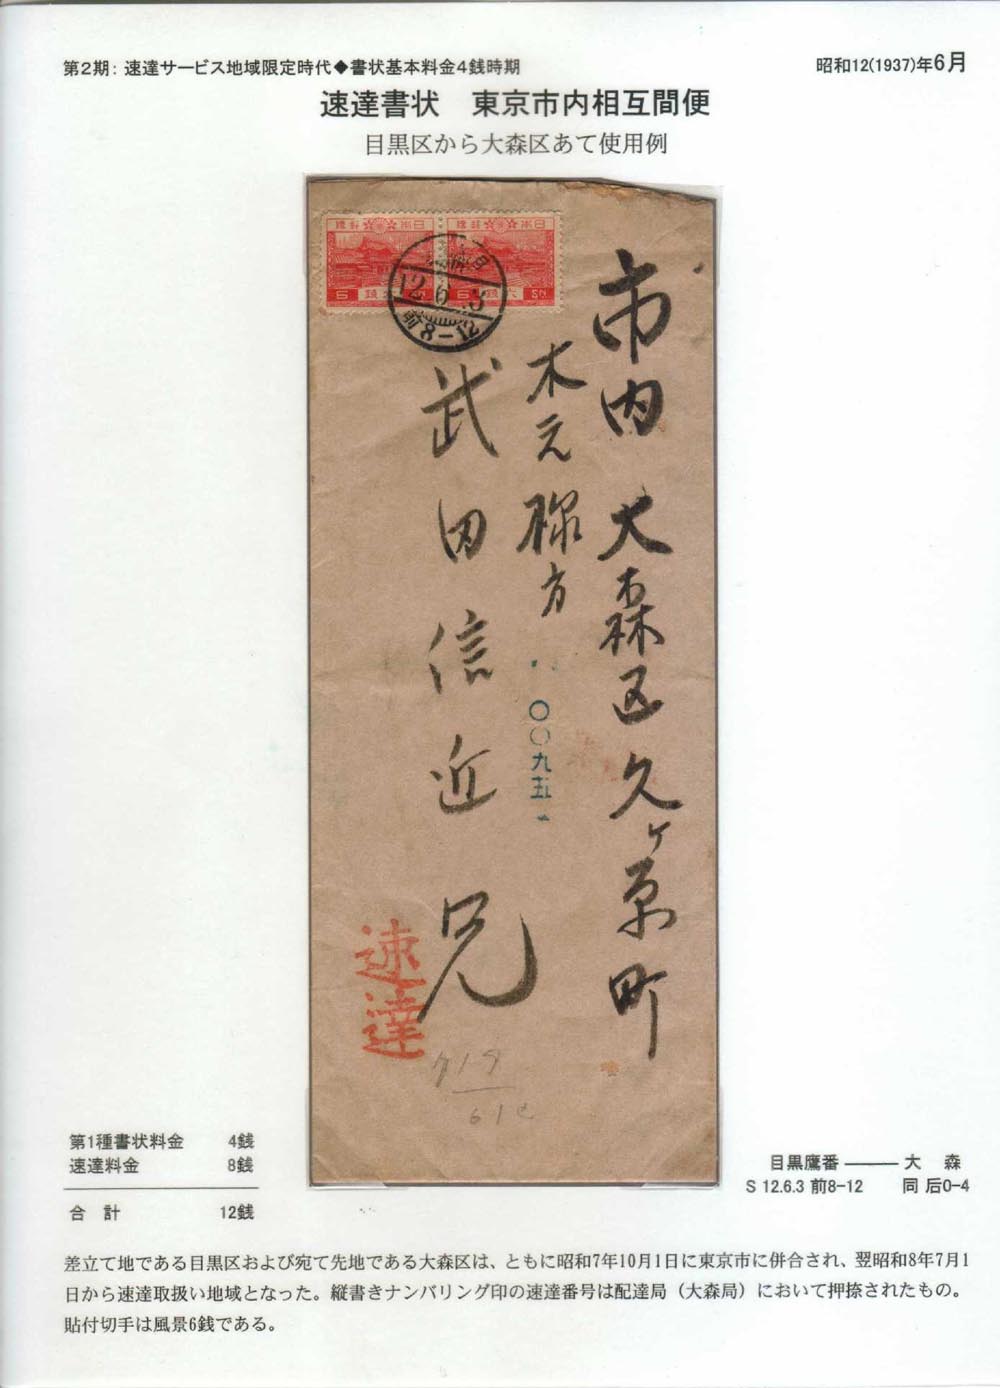 第2期：速達サービス地域限定時代◆書状基本料金4銭時期
昭和12(1937)年6月
速達書状　東京市内相互間便
目黒区から大森区あて使用例
日本郵便 日本郵便
6 六銭 6 六銭 SN
12.6.3
前8-12
市内 大森区久ヶ原町
木元様方
武田信近兄
〇〇九五
速達
719
61
第1種書状料金 4銭
速達料金 8銭
合 計 12銭
目黒鷹番 ―― 大 森
S 12.6.3 前8-12 同 后0-4
差立て地である目黒区および宛て先地である大森区は、ともに昭和7年10月1日に東京市に併合され、翌昭和8年7月1
日から速達取扱い地域となった。縦書きナンバリング印の速達番号は配達局（大森局）において押捺されたもの。
貼付切手は風景6銭である。